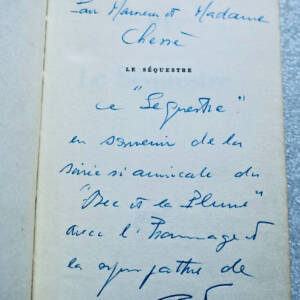 Pour Monsieur et Madame
Chessé
LE SÉQUESTRE
ce "Séquestre"
en souvenir de la
soirée si amicale du
"Bec et la Plume"
avec l'hommage et
la sympathie de